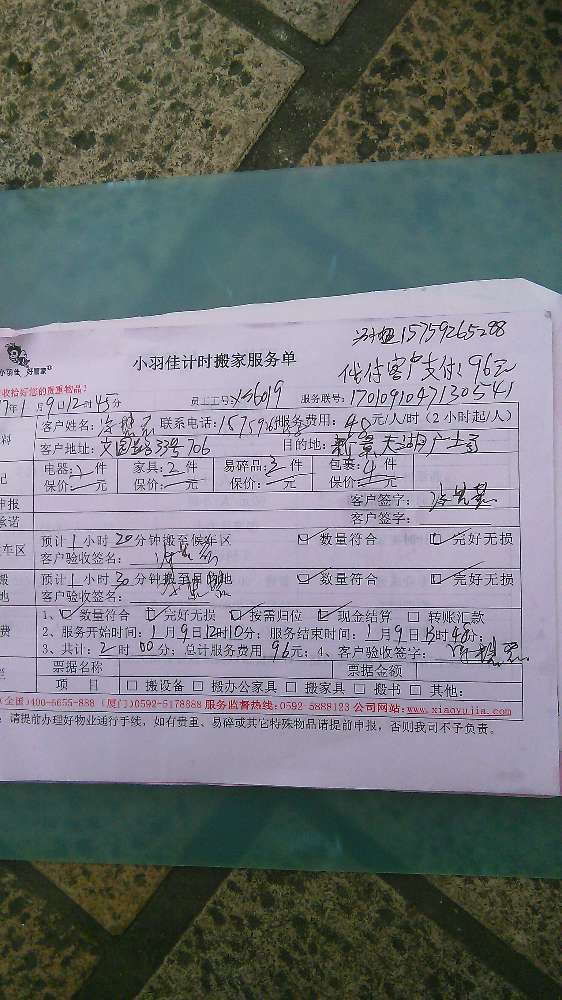 15759265288
待客户支付:96元
小羽佳 好管家
小羽佳计时搬家服务单
收拾好您的贵重物品!
7年1月9日12时45分 员工工号: 服务联号:1701091047130541
客户姓名: 联系电话: 服务费用:48元/人/时(2小时起/人)
客户地址:文园路33号706 目的地:新景天湖广场
电器: 件 家具:2件 易碎品:3件 包装:4件
保价: 元 保价: 元 保价: 元 保价: 元
申报 客户签字:
承诺 客户签字:
车区 预计1小时20分钟搬至候车区 ☑ 数量符合 ☑ 完好无损
客户验收签名:
预计1小时30分钟搬至目的地 ☑ 数量符合 ☑ 完好无损
地 客户验收签名:
1、☑ 数量符合 ☑ 完好无损 ☑ 按需归位 ☑ 现金结算 □ 转账汇款
费 2、服务开始时间:1月9日12时10分;服务结束时间:1月9日13时48分;
3、共计:2时00分;总计服务费用96元;4、客户验收签字:
票据名称 票据金额
项 目 □ 搬设备 □ 搬办公家具 □ 搬家具 □ 搬书 □ 其他:
全国)400-6655-888 (厦门)0592-5178888 服务监督热线:0592-5888123 公司网站:www.xiaoyujia.com
:请提前办理好物业通行手续,如有贵重、易碎或其它特殊物品请提前申报,否则我司不予负责。